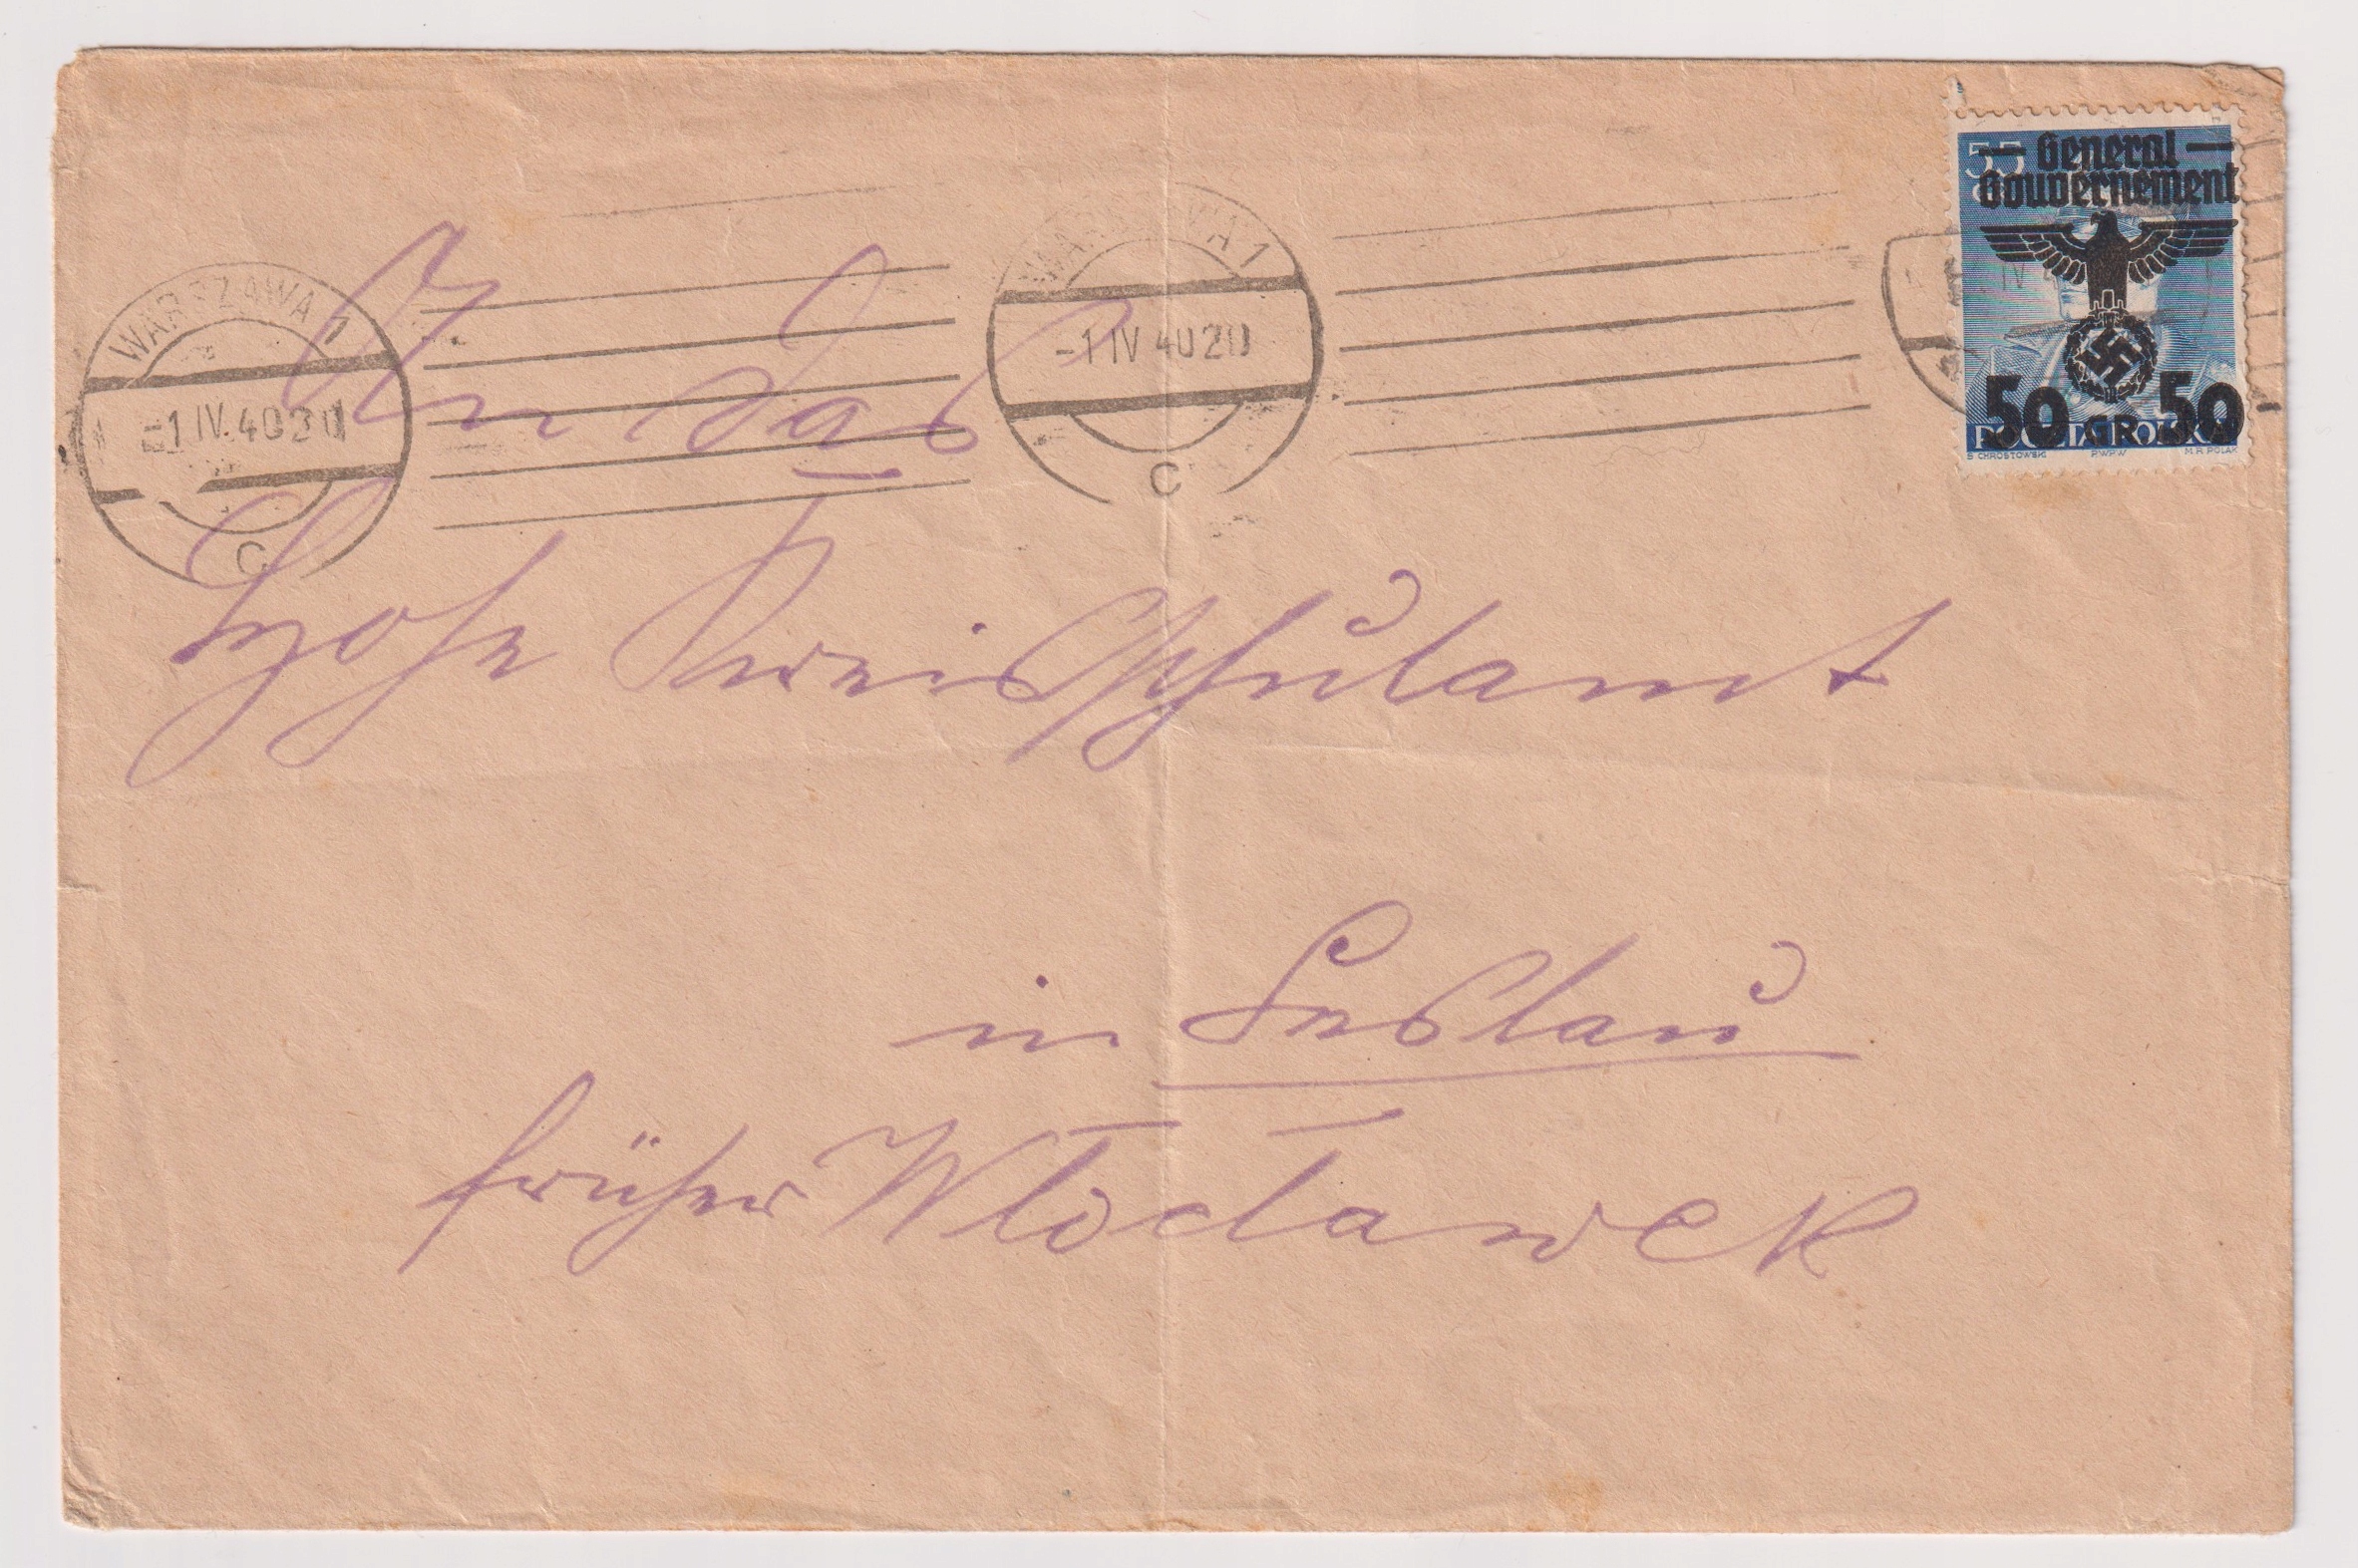 WARSZAWA 1
-1 IV. 40 20
C
WARSZAWA 1
-1 IV 40 20
C
55
— General —
Gouvernement
50 GR 50
POCZTA POLSKA
S CHROSTOWSKI P.W.P.W. M.R. POLAK
An das
Hohe Kreisschulamt
in Leslau
früher Włocławek